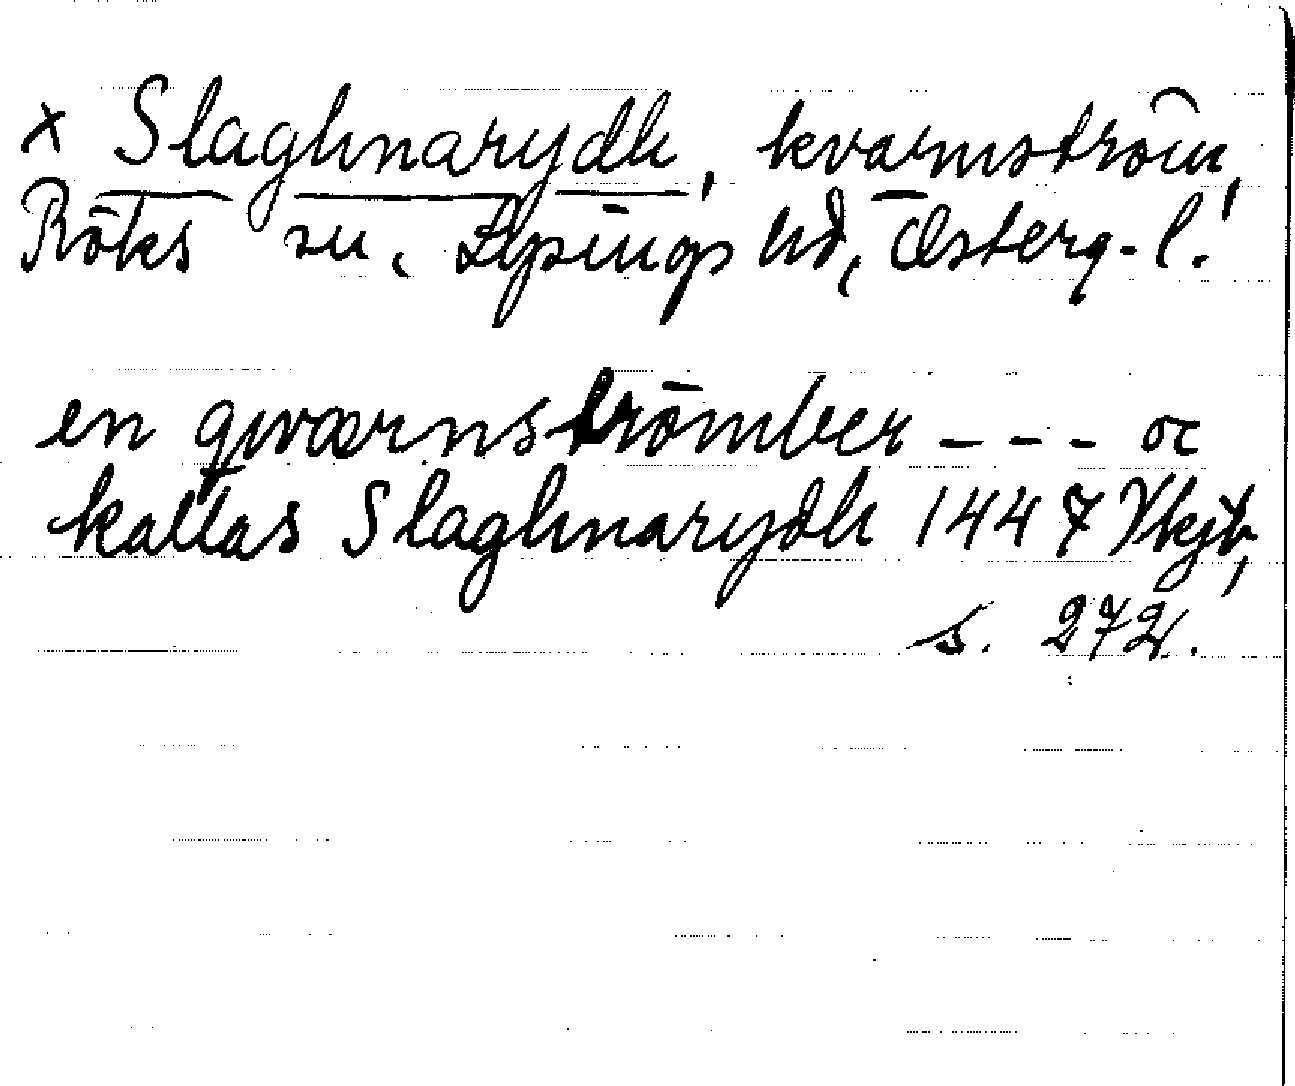 x Slaghnarydh, kvarnström,
Röks sn, Lysings hd, Österg-l.
en qwærnströmber --- oc
kallas Slaghnarydh 1447 Vkjb,
s. 272.